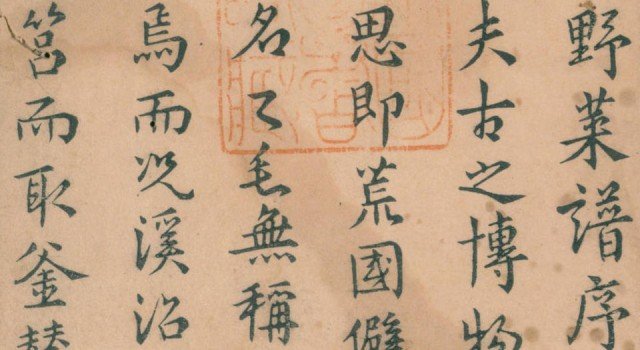 野菜譜序
夫古之博物
思即荒國僻
名之毛無稱
焉而况溪沼
筥而取釜